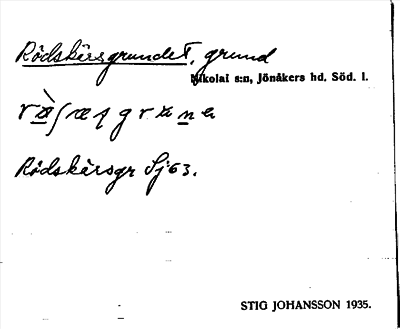 Rödskärsgrundet, grund
Nikolai s:n, Jönåkers hd. Söd. l.
Rödskärsgr Sj 63.
STIG JOHANSSON 1935.